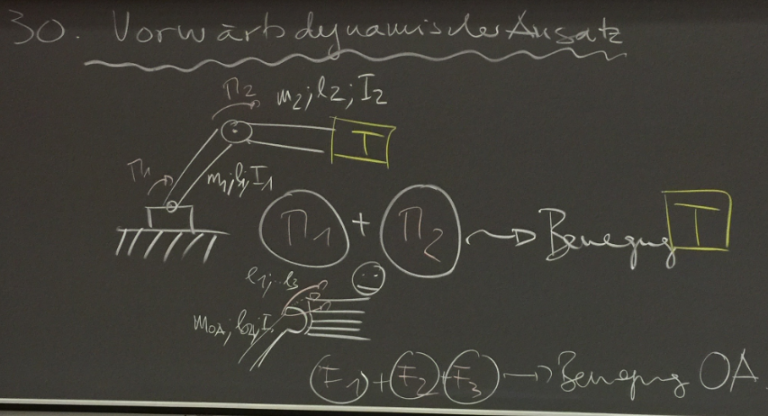 30. Vorwärtsdynamischer Ansatz
M2 m2; l2; I2
T
M1 m1; l1; I1
M1 + M2 → Bewegung T
l1; .. l3
mOA; lOA; I
F1 + F2 + F3 → Bewegung OA